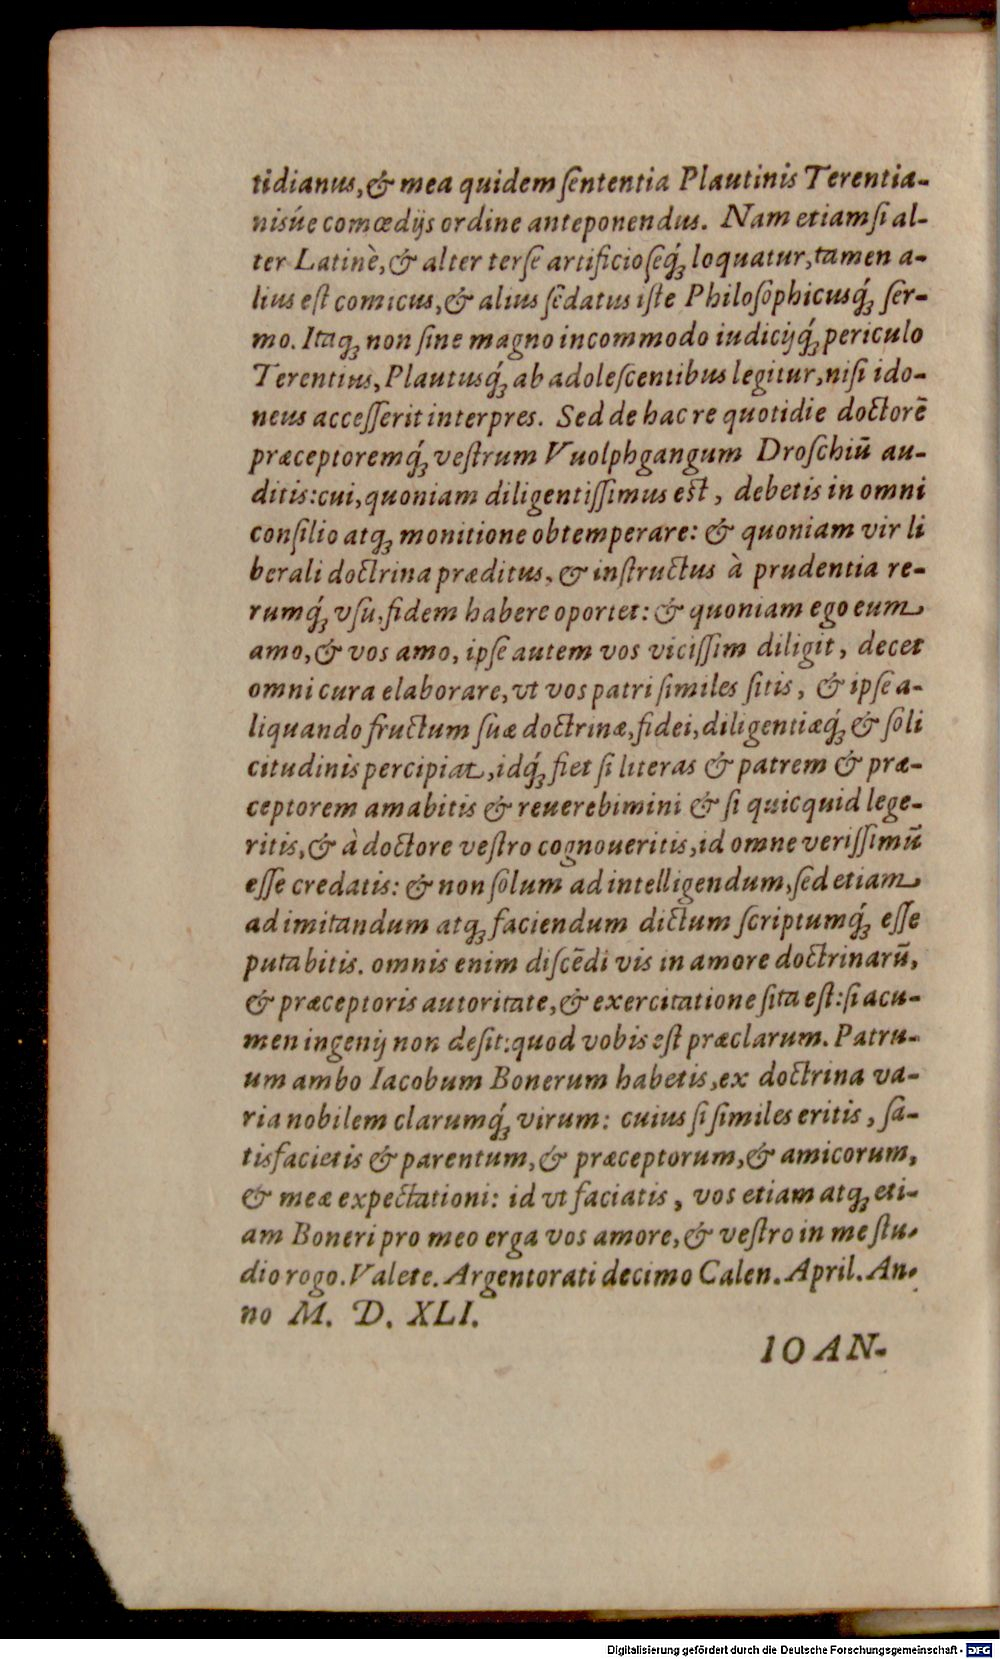 tidianus, & mea quidem ſententia Plautinis Terentia-
nisúe comœdijs ordine anteponendus. Nam etiamſi al-
ter Latinè, & alter terſe artificioſeq́; loquatur, tamen a-
lius eſt comicus, & alius ſedatus iſte Philoſophicusq́; ſer-
mo. Itaq; non ſine magno incommodo iudicijq́; periculo
Terentius, Plautusq́; ab adoleſcentibus legitur, niſi ido-
neus acceſſerit interpres. Sed de hac re quotidie doctorē
præceptoremq́; veſtrum Vuolphgangum Droſchiū au-
ditis: cui, quoniam diligentiſſimus eſt, debetis in omni
conſilio atq; monitione obtemperare: & quoniam vir li
berali doctrina præditus, & inſtructus à prudentia re-
rumq́; vſu, fidem habere oportet: & quoniam ego eum
amo, & vos amo, ipſe autem vos viciſſim diligit, decet
omni cura elaborare, vt vos patri ſimiles ſitis, & ipſe a-
liquando fructum ſuæ doctrinæ, fidei, diligentiæq́; & ſoli
citudinis percipiat, idq́; fiet ſi literas & patrem & præ-
ceptorem amabitis & reuerebimini & ſi quicquid lege-
ritis, & à doctore veſtro cognoueritis, id omne veriſſimū
eſſe credatis: & non ſolum ad intelligendum, ſed etiam
ad imitandum atq; faciendum dictum ſcriptumq́; eſſe
putabitis. omnis enim diſcēdi vis in amore doctrinarū,
& præceptoris autoritate, & exercitatione ſita eſt: ſi acu-
men ingenij non deſit: quod vobis eſt præclarum. Patru-
um ambo Iacobum Bonerum habetis, ex doctrina va-
ria nobilem clarumq́; virum: cuius ſi ſimiles eritis, ſa-
tisfacietis & parentum, & præceptorum, & amicorum,
& meæ expectationi: id vt faciatis, vos etiam atq; eti-
am Boneri pro meo erga vos amore, & veſtro in me ſtu-
dio rogo. Valete. Argentorati decimo Calen. April. An-
no M. D. XLI.
IOAN-
Digitalisierung gefördert durch die Deutsche Forschungsgemeinschaft - DFG